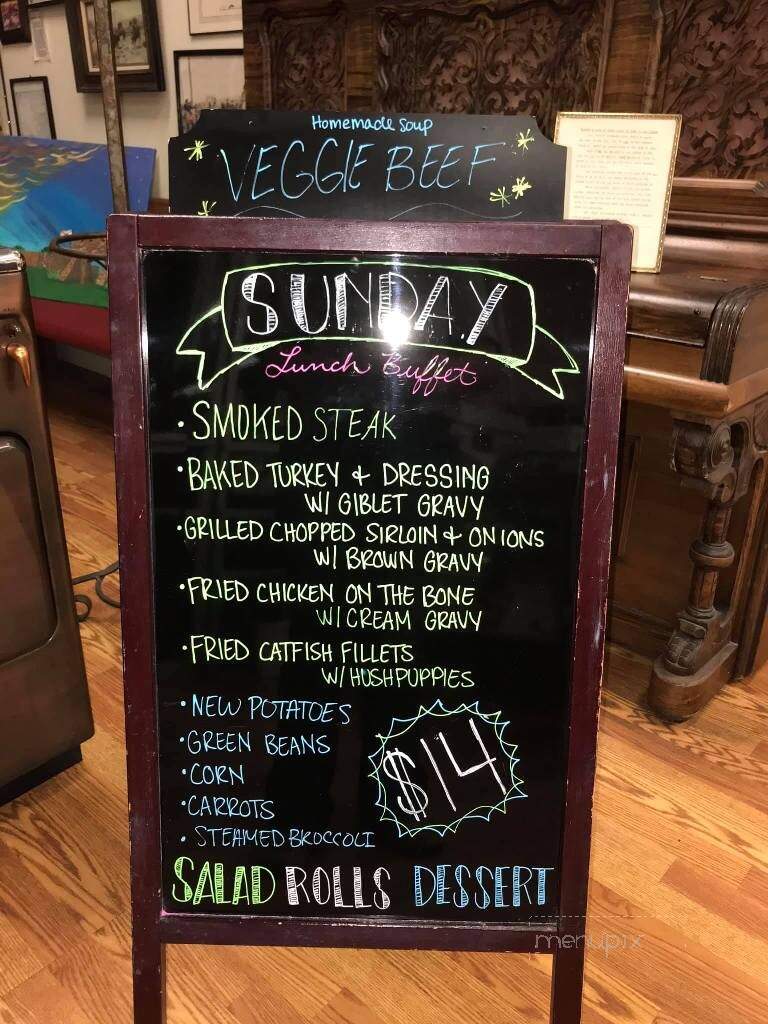 Homemade Soup
VEGGIE BEEF
SUNDAY
Lunch Buffet
• SMOKED STEAK
• BAKED TURKEY & DRESSING
W/ GIBLET GRAVY
• GRILLED CHOPPED SIRLOIN & ONIONS
W/ BROWN GRAVY
• FRIED CHICKEN ON THE BONE
W/ CREAM GRAVY
• FRIED CATFISH FILLETS
W/ HUSHPUPPIES
• NEW POTATOES
• GREEN BEANS
• CORN
• CARROTS
• STEAMED BROCCOLI
$14
SALAD ROLLS DESSERT
menupix